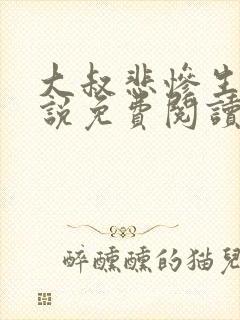 大叔悲慘生
說免費閱讀
醉醺醺的猫兒